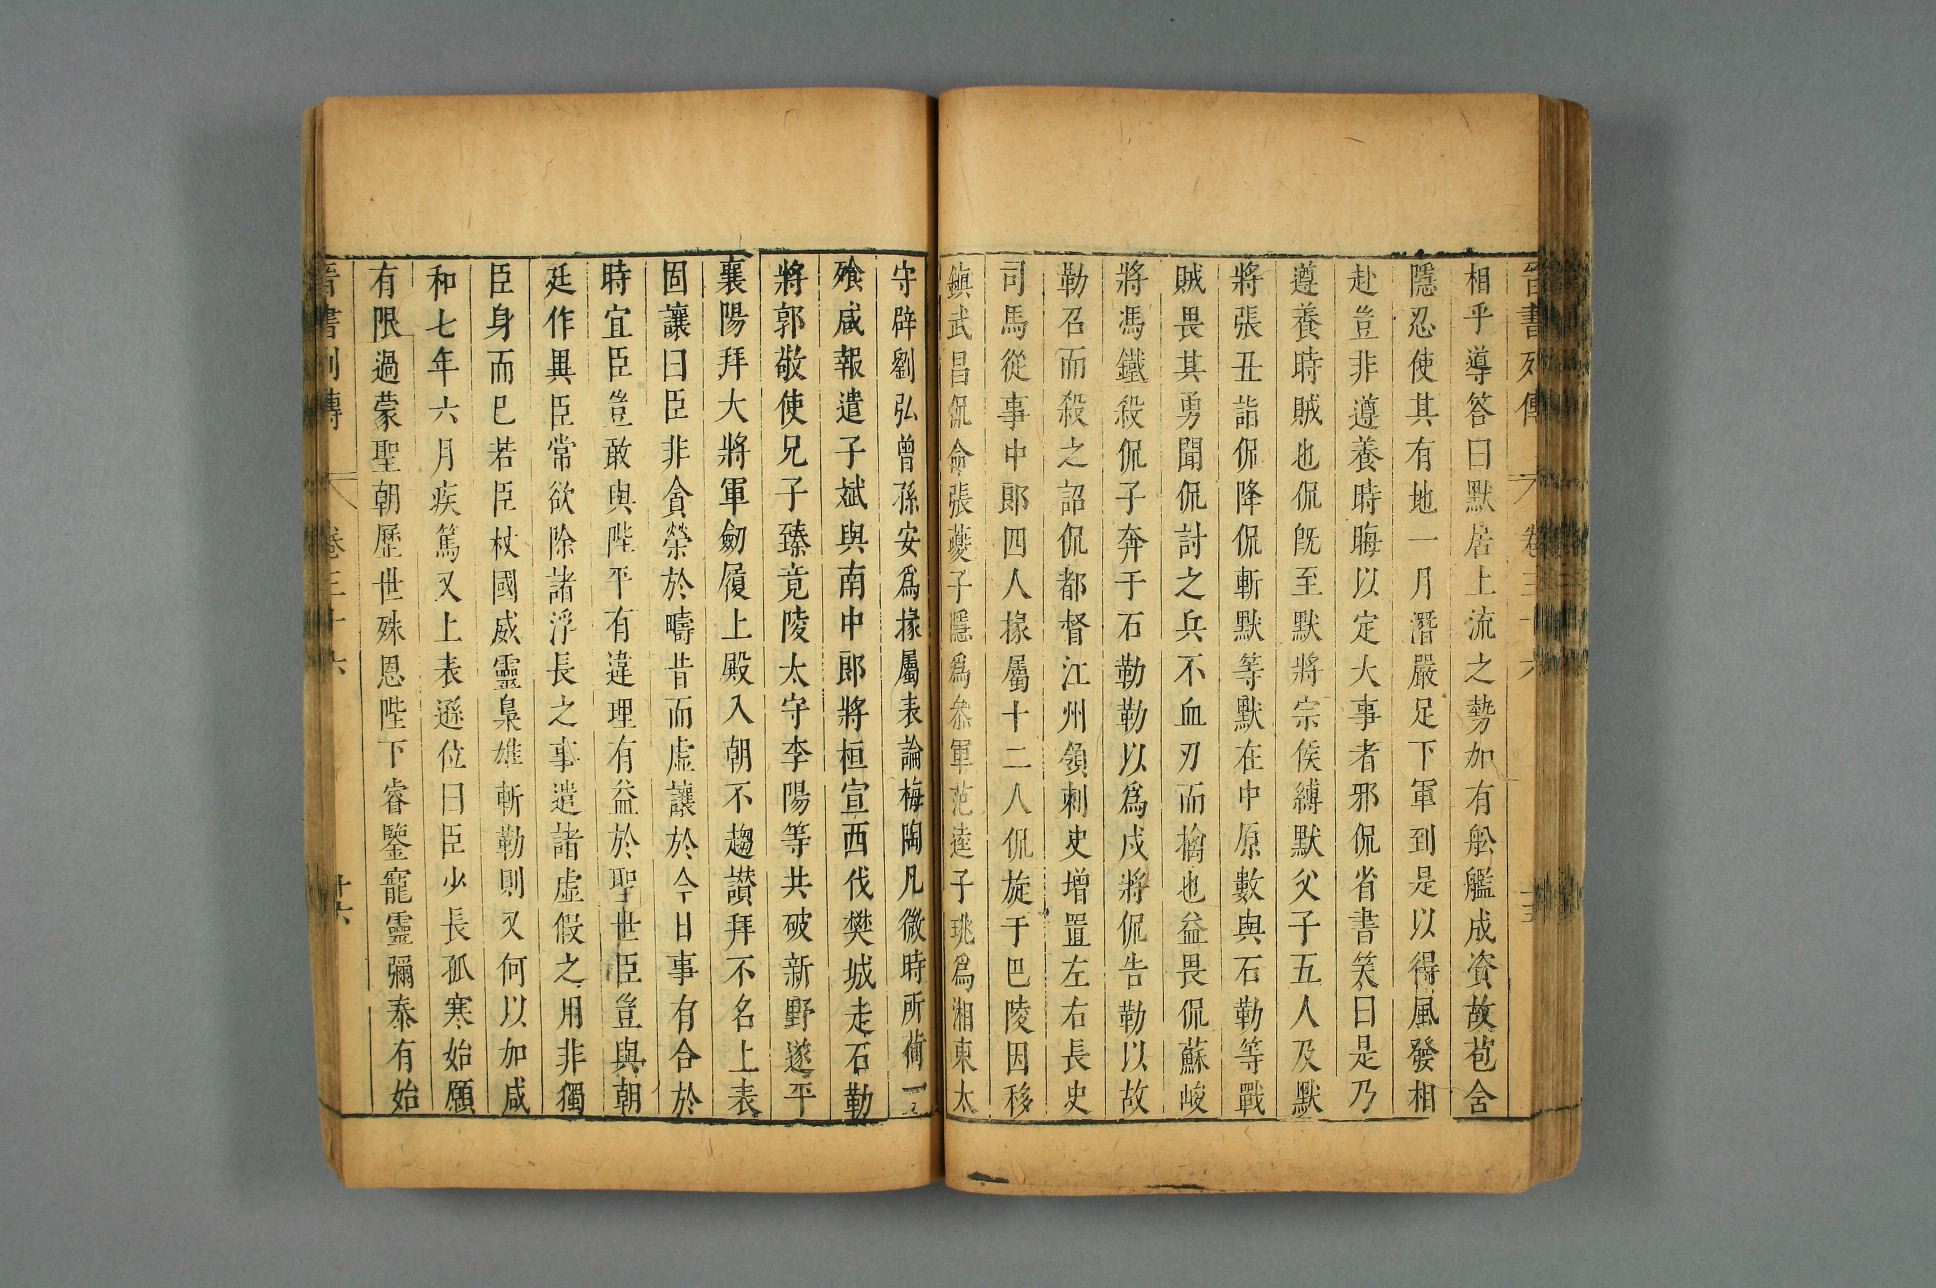 晉書列傳 卷三十六 十五
相乎導答曰默居上流之勢加有舩艦成資故苞含
隱忍使其有地一月潛嚴足下軍到是以得風發相
赴豈非遵養時晦以定大事者邪侃省書笑曰是乃
遵養時賊也侃旣至默將宗侯縛默父子五人及默
將張丑詣侃降侃斬默等默在中原數與石勒等戰
賊畏其勇聞侃討之兵不血刃而擒也益畏侃蘇峻
將馮鐵殺侃子奔于石勒勒以爲戍將侃告勒以故
勒召而殺之詔侃都督江州領刺史增置左右長史
司馬從事中郎四人掾屬十二人侃旋于巴陵因移
鎮武昌侃命張夔子隱爲叅軍范逵子珧爲湘東太
守辟劉弘曾孫安爲掾屬表論梅陶凡微時所荷一
飱咸報遣子斌與南中郎將桓宣西伐樊城走石勒
將郭敬使兄子臻竟陵太守李陽等共破新野遂平
襄陽拜大將軍劒履上殿入朝不趨讃拜不名上表
固讓曰臣非貪榮於疇昔而虛讓於今日事有合於
時宜臣豈敢與陛平有違理有益於聖世臣豈與朝
廷作異臣常欲除諸浮長之事遣諸虛假之用非獨
臣身而巳若臣杖國威靈梟雄斬勒則又何以加咸
和七年六月疾篤又上表遜位曰臣少長孤寒始願
有限過蒙聖朝歷世殊恩陛下睿鑒寵靈彌泰有始
晉書列傳 卷三十六 十六